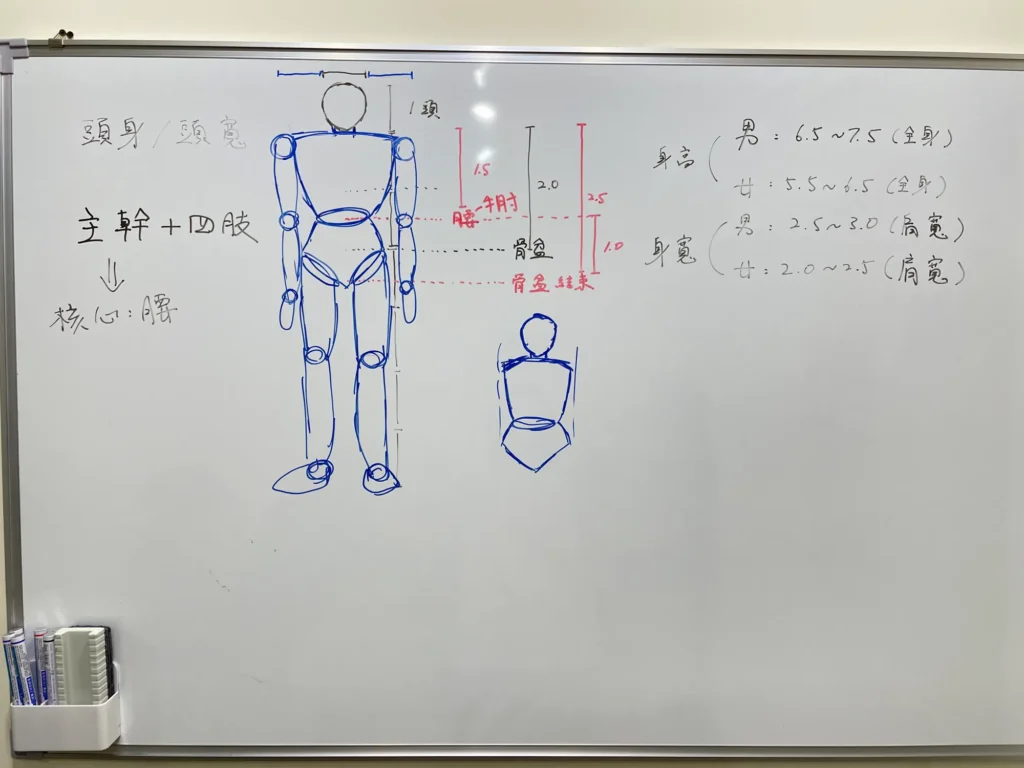 頭身/頭寬
主幹+四肢
⇓
核心:腰
1頭
1.5
2.0
2.5
腰-手肘
1.0
骨盆
骨盆結束
身高
男:6.5~7.5(全身)
女:5.5~6.5(全身)
身寬
男:2.5~3.0(肩寬)
女:2.0~2.5(肩寬)